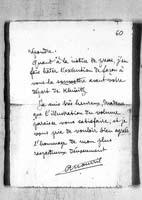 60
répondre.
Quant à la notice de presse, j'en
fais hâter l'exécution de façon à
vous la soumettre avant votre
départ de
Je suis très heureux, Madame
que l'illustration du volume
paraisse vous satisfaire, et je
vous prie de vouloir bien agréer
l'hommage de mon plus
respectueux dévouement.